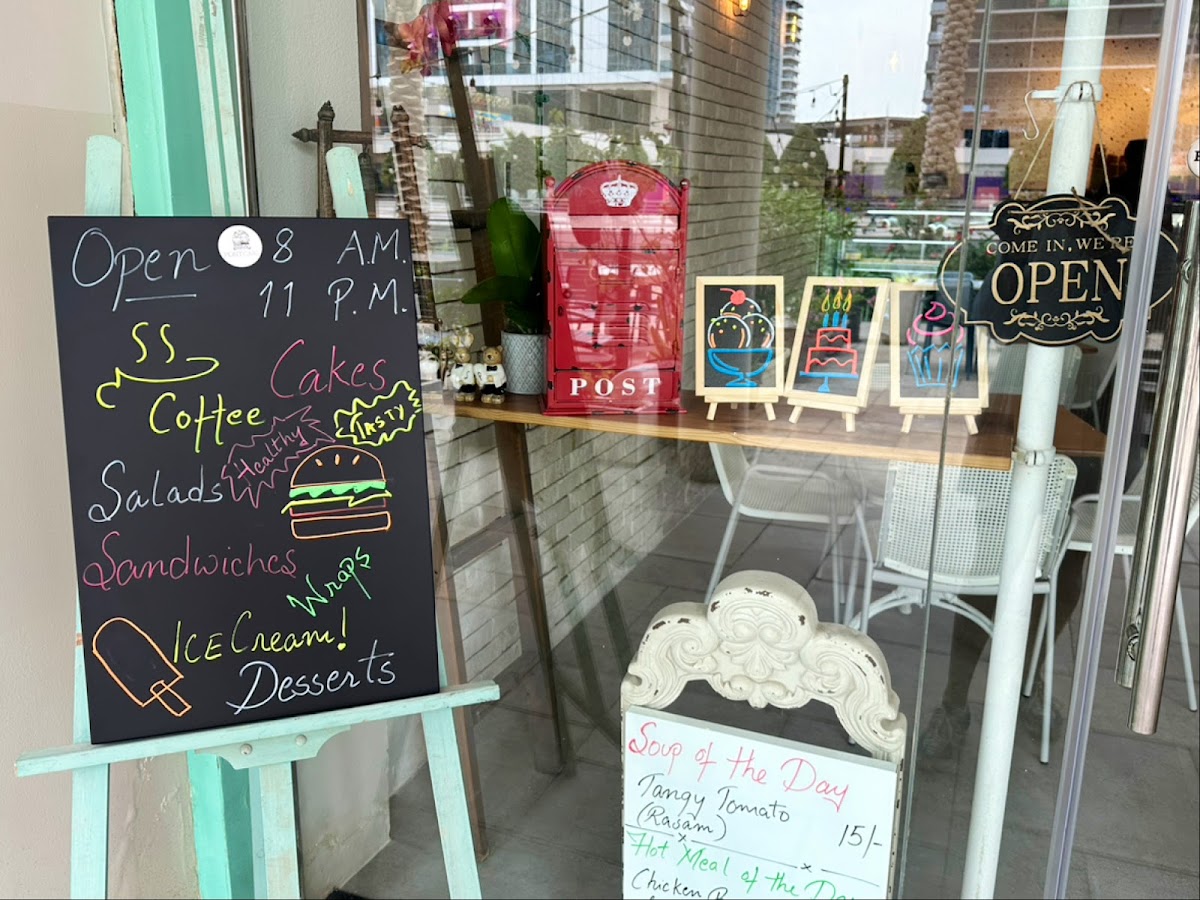 Open 8 A.M.
11 P.M.
Coffee
Cakes
TASTY
Healthy
Salads
Sandwiches
Wraps
ICE Cream!
Desserts
POST
COME IN, WE'RE
OPEN
Soup of the Day
Tangy Tomato
(Rasam) 15/-
Hot Meal of the Da
Chicken